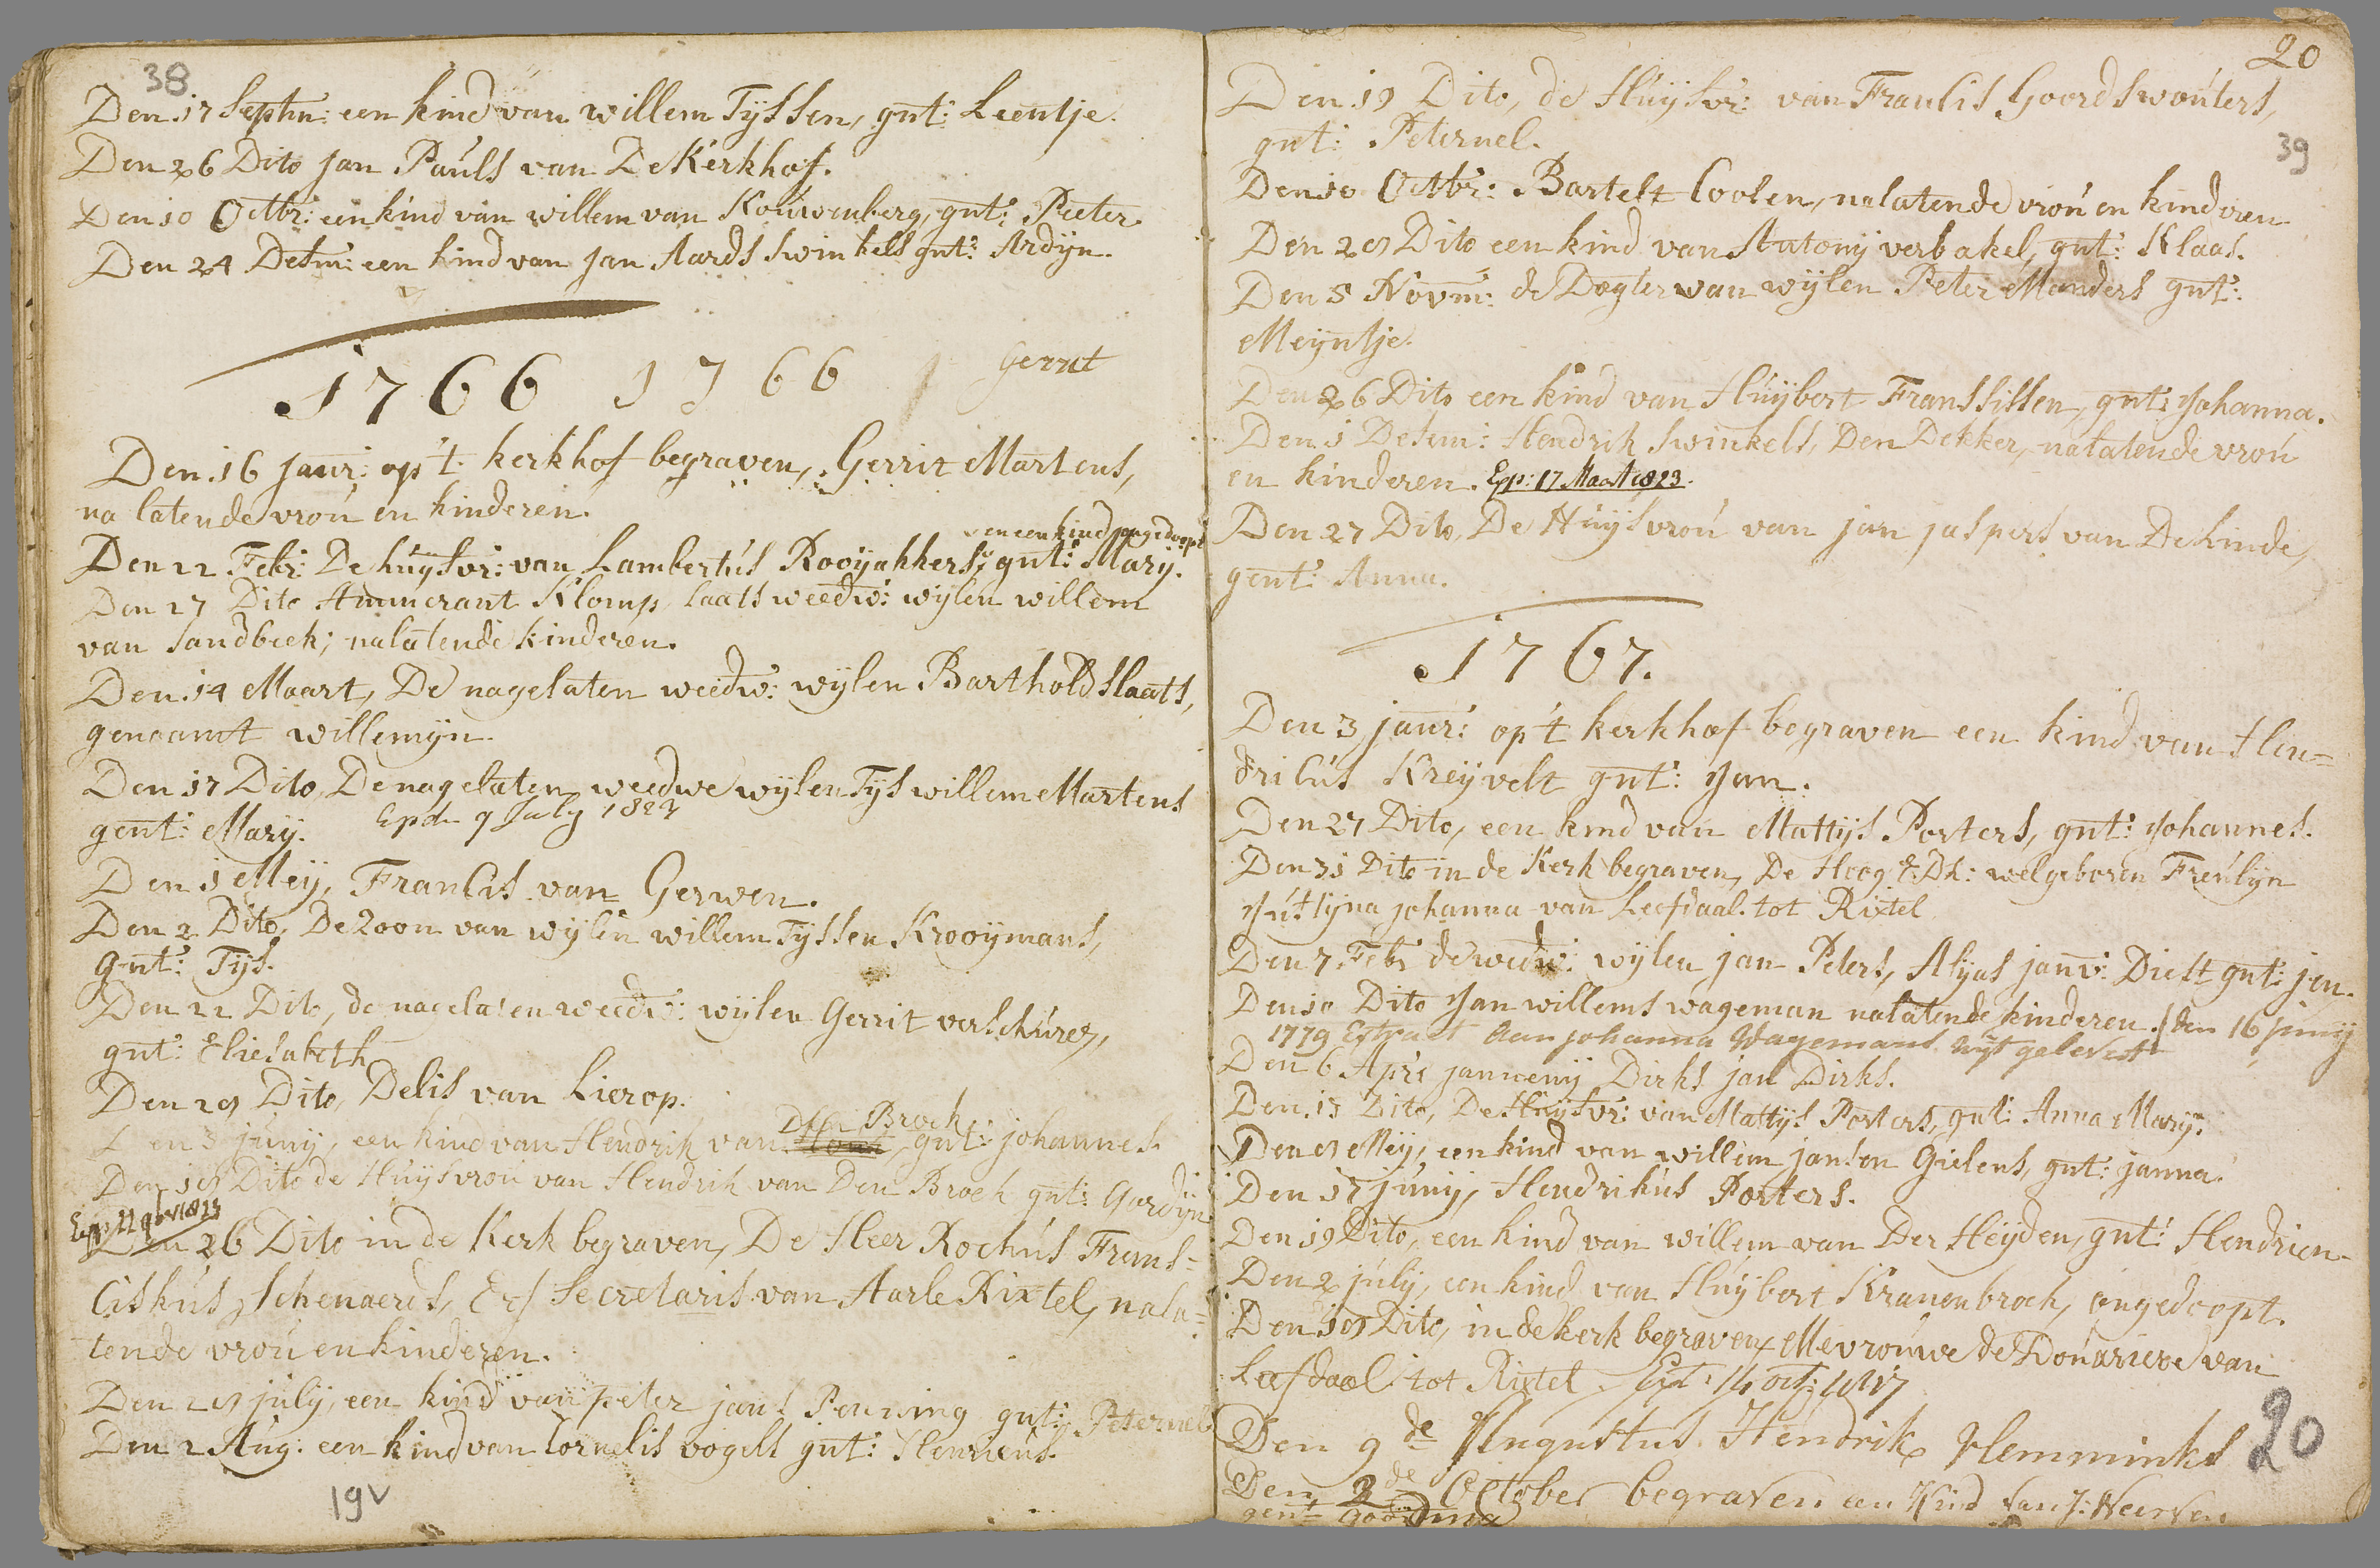 38
Den 17 Septm: een kind van willem Tyssen, gnt: Leentje.
Den 26 Dito Jan Pauls van De Kerkhof.
Den 10 Octbr: een kind van willem van Kouwenberg, gnt: Peeter
Den 24 Desm: een kind van Jan Aards Swinkels gnt: Ardijn.
1766 1766 Gerrit
Den 16 Janr: op 't kerkhof begraven, Gerrit Martens,
na latende vrou en kinderen.
en een kind ongedoopt
Den 22 Febr: De huysvr: van Lambertus Rooyakkers, gnt: Mary.
Den 27 Dito Ammerant Klomp laats weedw: wylen willem
van Sandbeek; nalatende kinderen.
Den 14 Maart, De nagelaten weedw: wylen Barthold Slaats,
genaamt willemijn.
Den 17 Dito, De nagelaten weedwe wylen Tys willem Martens
gent: Mary. Epd. 9 July 1823
Den 1 Mey, Francis van Gerwen.
Den 2 Dito, De Zoon van wylen willem Tyssen Krooymans,
gnt: Tys.
Den 22 Dito, de nagelaten weedw: wylen Gerrit verschuren,
gnt: Eliesabeth
Den 29 Dito, Delis van Lierop.
Den Broek
Den 3 juny, een kind van Hendrik van Hout, gnt: johannes.
Den 19 Dito de Huysvrou van Hendrik van Den Broek gnt: Gordyn
Exp: 11
Den 26 Dito in de Kerk begraven, De Heer Rochus Frans=
ciskus, Schenaerds, Secretaris van Aarle Rixtel, nala=
tende vrou en kinderen.
Den 29 july, een kind van peter jans Penning gnt: Peternel
Den 2 Aug: een kind van Cornelis vogels gnt: Henricus.
19v
20
Den 19 Dito, de Huysvr: van Francis Goords wouters,
gnt: Peternel.
39
Den 10 Octbr: Bartelt Coolen, nalatende vrou en kinderen
Den 29 Dito een kind van Antony verbakel, gnt: Klaas.
Den 5 Novm: de Dogter van wylen Peter Manders gnt:
Meyntje.
Den 26 Dito een kind van Huybert Franssissen, gnt: Johanna.
Den 1 Desem: Hendrik Swinkels, Den Dekker, nalatende vrou
en kinderen. Exp: 17 Maart 1823.
Den 27 Dito, De Huysvrou van jan jaspers van De Linde,
gent: Anna.
1767.
Den 3 janr: op 't kerkhof begraven een kind van Hen=
dricus Kreyvelt gnt: Jan.
Den 27 Dito, een kind van Mattys Porters, gnt: Johannes.
Den 31 Dito in de Kerk begraven, De Hoog welgeboren Freulyn
Justyna johanna van Leefdaal tot Rixtel
Den 7 Febr de wedw: wylen jan Peters, Alyas jan v: Diest gnt: jen.
Den 10 Dito Jan willems wageman nalatende kinderen. / den 16 junij
1779 Extract Aan johanna Wagemans uijt gelevert
Den 6 Apri janneny Dirks jan Dirks.
Den 13 Dito, De Huysvr: van Mattys Porters, gnt: Anna Mary.
Den 9 Mey, een kind van willem jansen Gielens, gnt: janna.
Den 17 juny, Hendrikus Porters.
Den 19 Dito, een kind van willem van Der Heyden, gnt: Hendrien.
Den 2 july, een kind van Huybert Kranenbroek, ongedoopt.
Den 19 Dito, in de kerk begraven Mevrouwe de Douariere van
Leefdaal tot Rixtel Ext: 14 oct: 1817
Den 9de Augustus Hendrik Hemminks
20
Den 2de October begraven een Kind van J: Neerven
gent